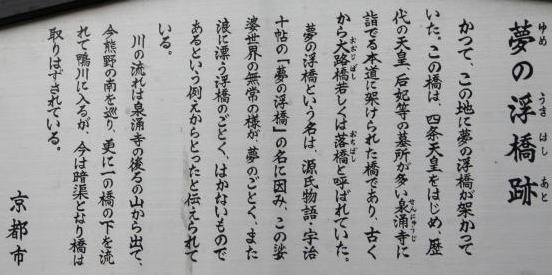 夢の浮橋跡
ゆめ うき はし あと
かつて、この地に夢の浮橋が架かって
いた。この橋は、四条天皇をはじめ、歴
代の天皇、后妃等の墓所が多い泉涌寺に
せんにゅうじ
詣でる本道に架けられた橋であり、古く
から大路橋若しくは落橋と呼ばれていた。
おおじばし おちばし
夢の浮橋という名は、源氏物語・宇治
十帖の「夢の浮橋」の名に因み、この娑
婆世界の無常の様が夢のごとく、また
浪に漂う浮橋のごとく、はかないもので
あるという例えからとったと伝えられて
いる。
川の流れは泉涌寺の後ろの山から出て、
今熊野の南を巡り、更に一の橋の下を流
れて鴨川に入るが、今は暗渠となり橋は
取りはずされている。
京都市